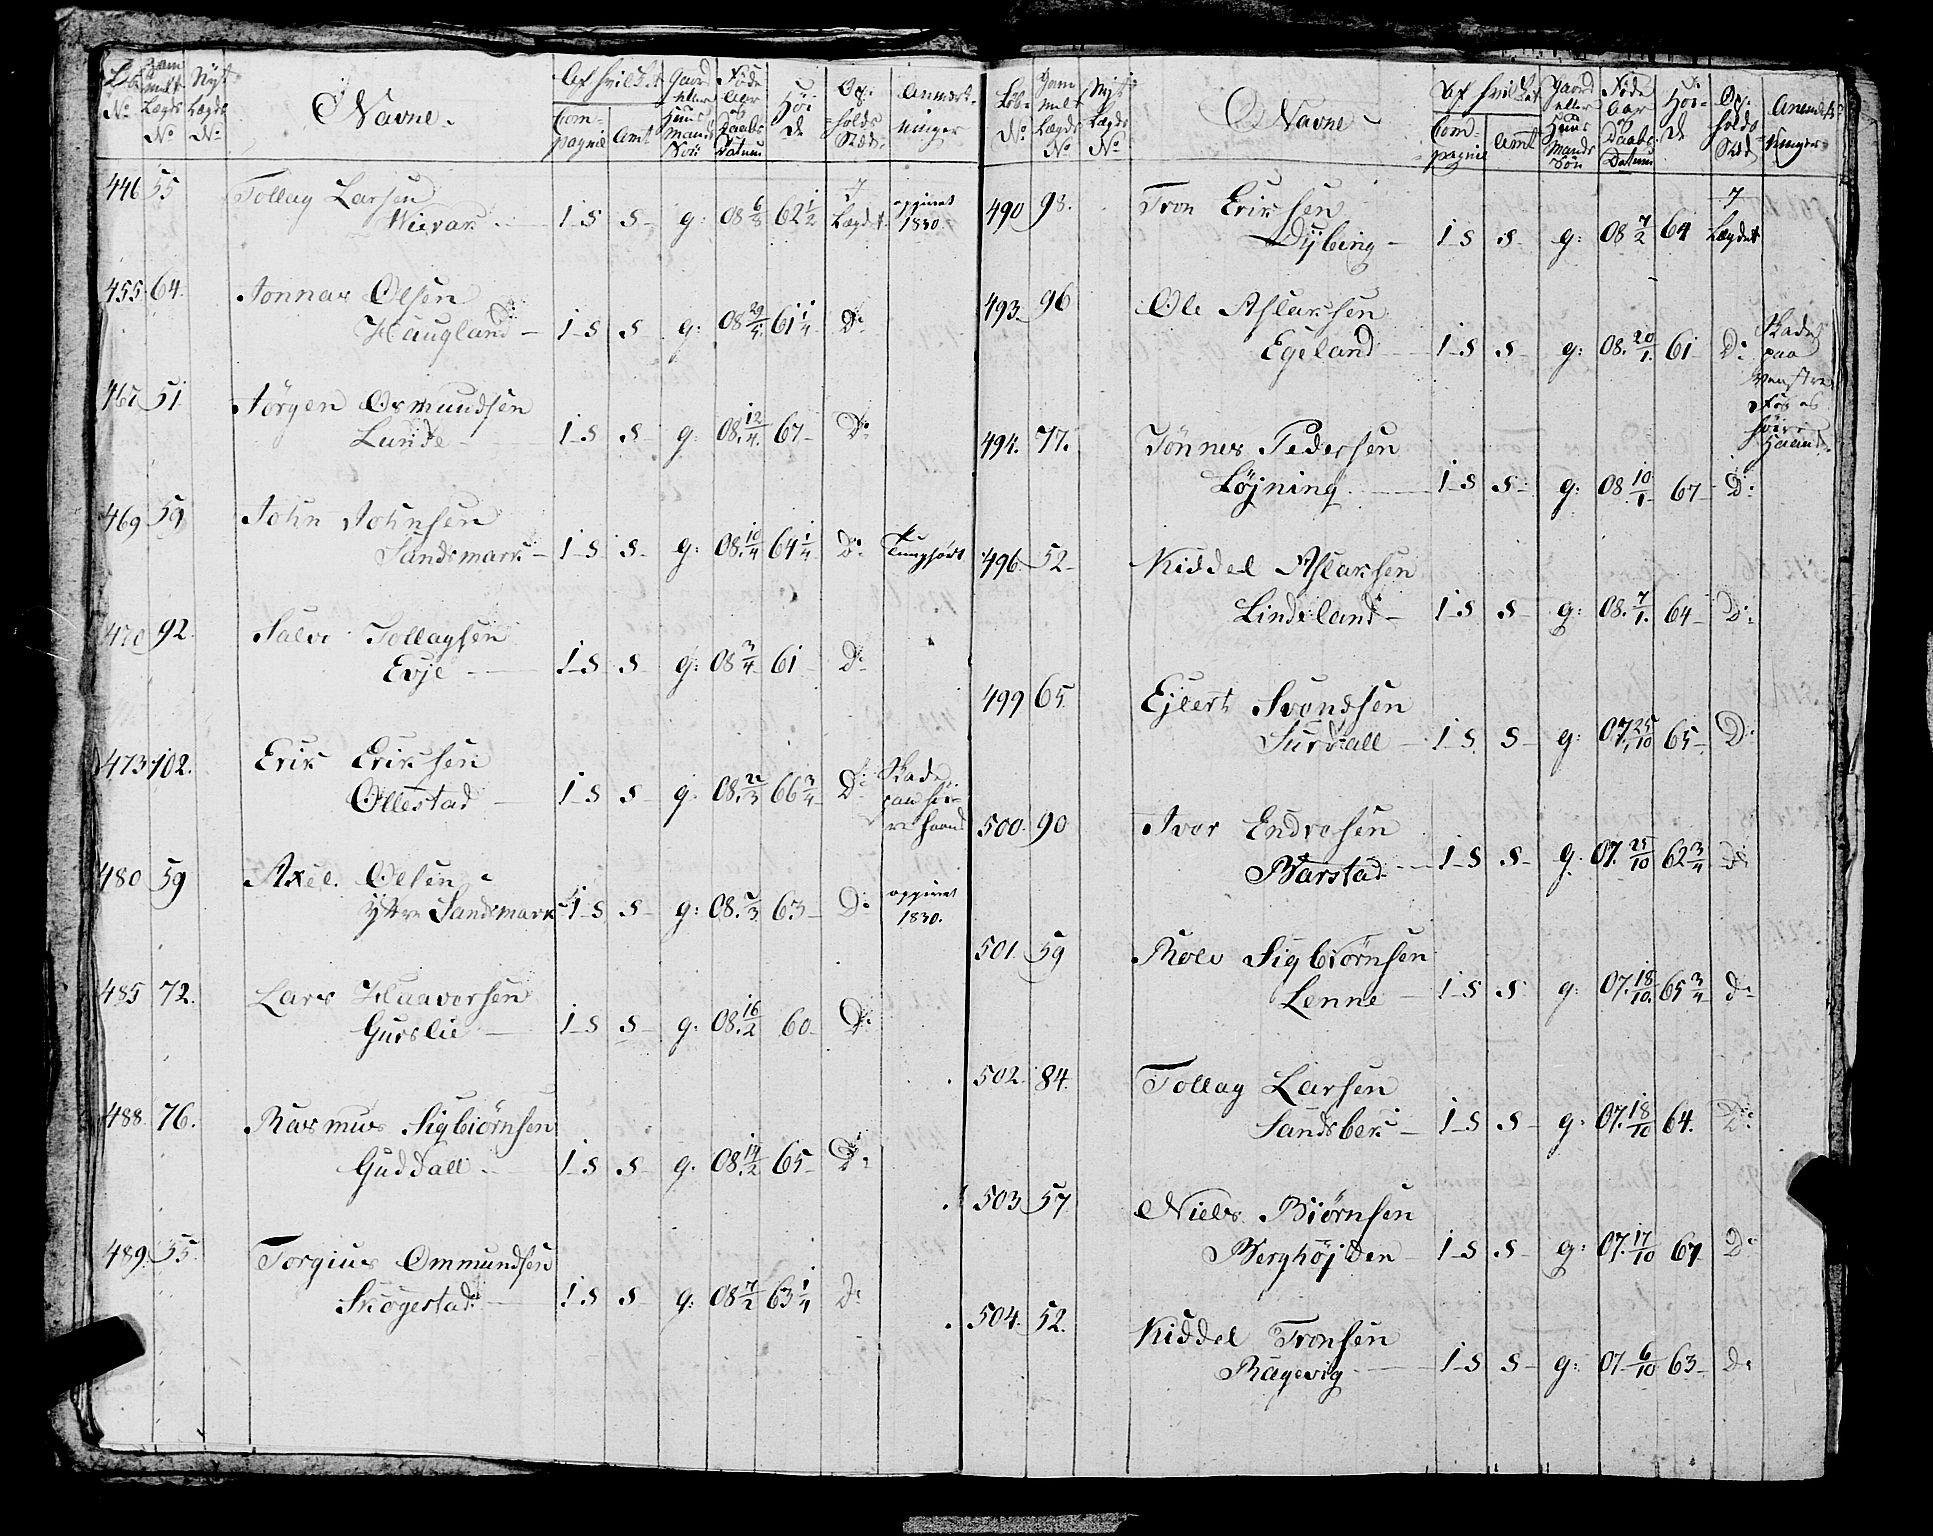 Løb. No. Gammelt Lægds No. Nyt Lægds No. Navne. Af hvilket Compagnie Amt Gaard eller Huus Mands Søn Føde Aar og Daabs Datum Høide Opholds Stæd. Anmærkninger
446 55 Tollag Larsen
Hievar. 1-S S- g: 08 6/5 62 1/2 I Lægdet. 1830.
455. 64. Tonnas Olsen
Haugland 1-S S g: 08 29/4. 61 1/4 Do
467 51 Jørgen Osmundsen
Lunde 1-S S- g: 08. 12/4. 67- Do
469 59 John Johnsen
Sandsmark 1-S S- g: 08. 10/4 64 1/4 Do Tunghørt
470 92. Salve Tollagsen
Evje 1-S S g: 08 3/4 61 Do
473 102. Erik Eriksen
Ollestad 1-S S g: 08. 22/3 66 3/4 Do Skade paa høire Haand
480 59 Axel. Olsen
Yttre Sandsmark 1-S S- g: 08. 5/3 63- Do 1830.
485 72. Lars Haavorsen
Gurslie 1-S S- g: 08. 16/2 60- Do
488. 76. Rasmus Sigbiørnsen
Guddall 1-S S- g. 08. 14/2 65- Do
489. 55. Torgius Ommundsen
Skogestad 1-S S- g: 08 7/2 63 1/4 Do
Løb. No. Gammelt Lægds No. Nyt Lægds No. Navne. Af hvilket Compagnie Amt Gaard eller Huus Mands Søn Føde Aar og Daabs Datum Høide Opholds Stæd Anmærkninger
490 98. Tron Eriksen
Dybing 1-S S- g: 08 7/2 64 I Lægdet
493. 96 Ole Aslaksen
Egeland 1-S S- g: 08. 20/1. 61- Do Skade paa venstre Fod og høire Haand.
494. 77. Tønnes Pedersen
Løjning 1-S S- g: 08 10/1- 67- Do
496. 52- Kiddel Aslaksen
Lindeland 1-S S- g: 08. 7/1. 64- Do
499 65. Ejlert Svendsen
Surdall 1-S S- g: 07 25/10 65- Do
500. 90 Iver Endresen
Barstad 1-S S- g: 07. 25/10 62 3/4 Do
501. 59 Rolv Sigbiørnsen
Lenne 1-S S g: 07. 18/10. 65 3/4 Do
502. 84. Tollag Larsen
Sandsberk 1-S S- g: 07. 18/10 64. Do
503 57. Niels Biørnsen
Berghøjden 1-S S- g: 07. 17/10 67 Do
504. 52. Kiddel Tronsen
Rægevig 1-S S- g: 07- 6/10 63- Do